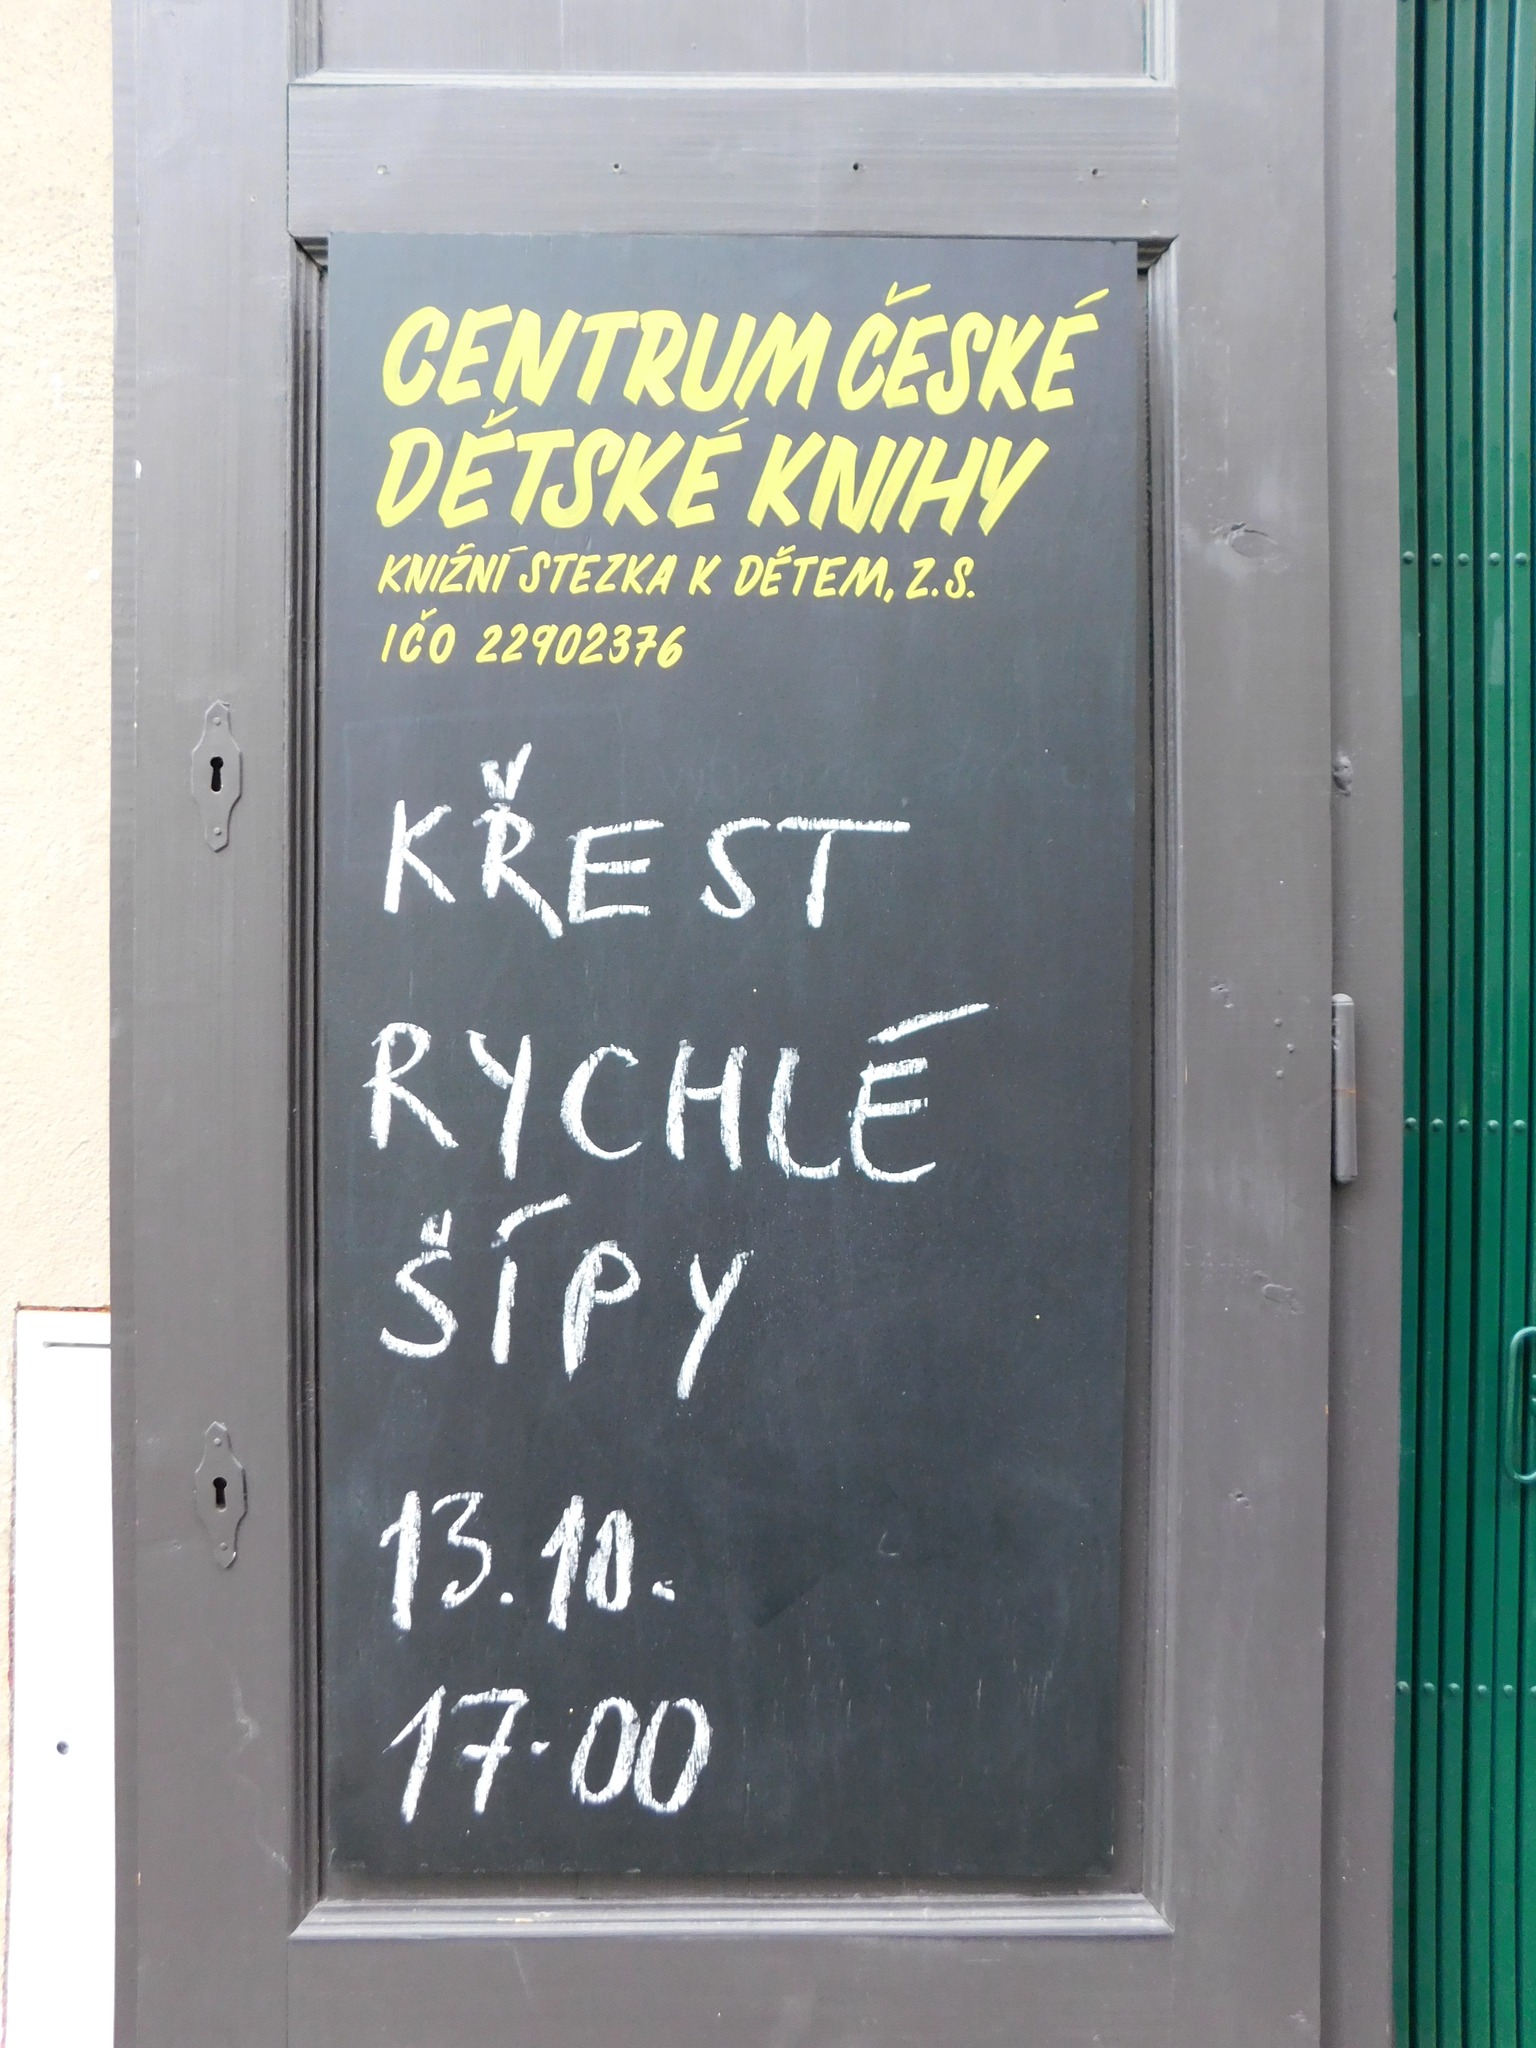 CENTRUM ČESKÉ
DĚTSKÉ KNIHY
KNIŽNÍ STEZKA K DĚTEM, Z.S.
IČO 22902376
KŘEST
RYCHLÉ
ŠÍPY
13.10.
17.00